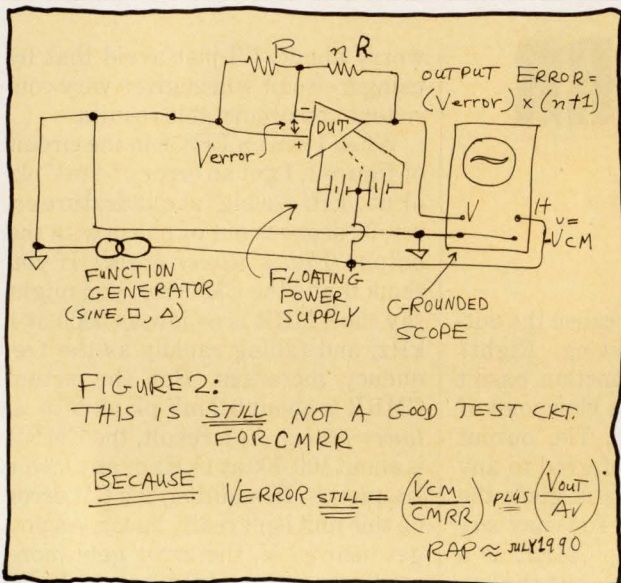 R
nR
OUTPUT ERROR =
(Verror) x (n+1)
−
DUT
+
Verror
V
H
"=
VCM
FUNCTION
GENERATOR
(SINE, □, △)
FLOATING
POWER
SUPPLY
GROUNDED
SCOPE
FIGURE 2:
THIS IS STILL NOT A GOOD TEST CKT.
FOR CMRR
BECAUSE VERROR STILL = (VCM/CMRR) PLUS (VOUT/AV).
RAP ≈ JULY 1990